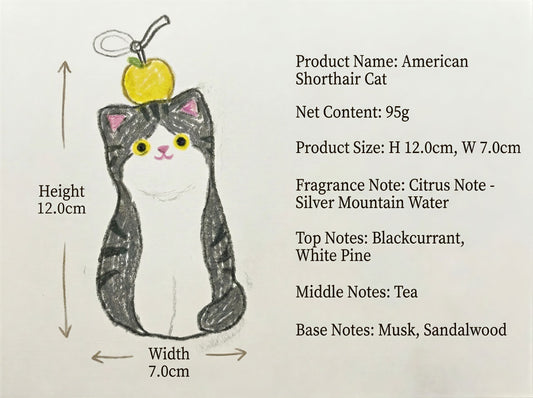 Height
12.0cm
Width
7.0cm
Product Name: American
Shorthair Cat
Net Content: 95g
Product Size: H 12.0cm, W 7.0cm
Fragrance Note: Citrus Note -
Silver Mountain Water
Top Notes: Blackcurrant,
White Pine
Middle Notes: Tea
Base Notes: Musk, Sandalwood